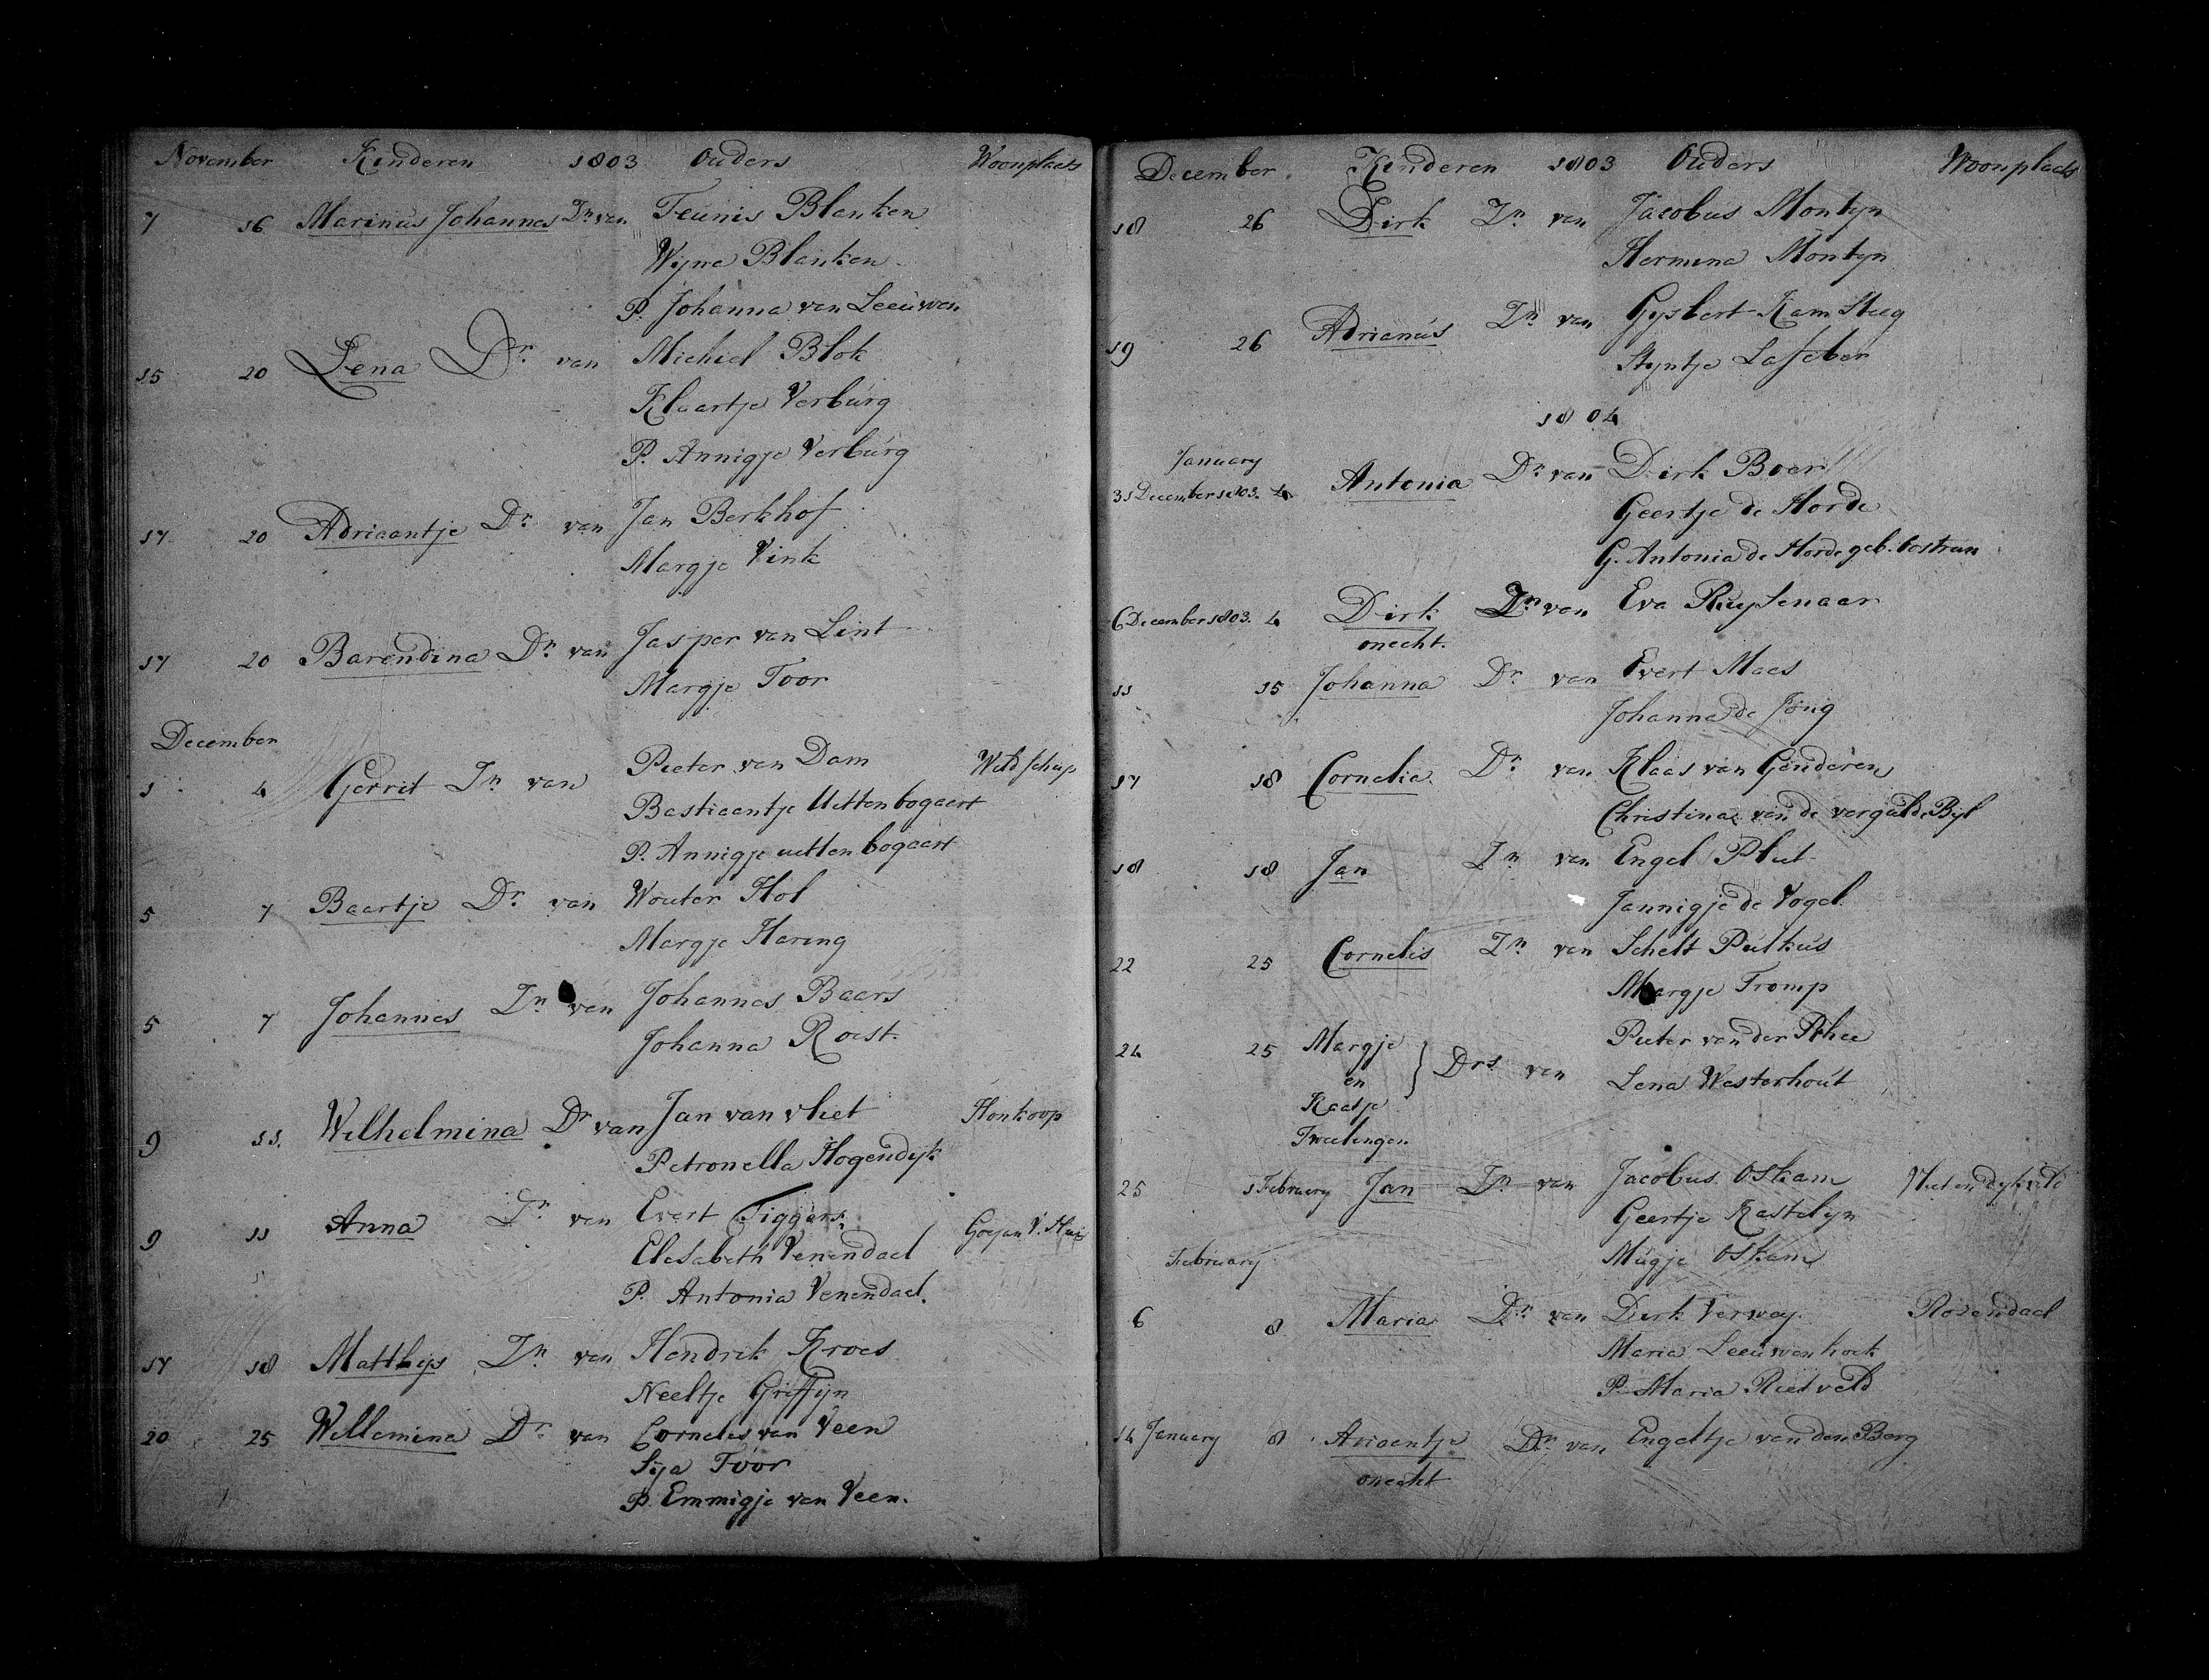 November Kinderen 1803 Ouders Woonplaats
7 16 Marinus Johannes Zn van Teunis Blanken
Wijne Blanken
P. Johanna van Leeuwen
15 20 Lena Dr. van Michiel Blok
Klaartje Verburg
P. Annigje Verburg
17 20 Adriaantje Dr. van Jan Berkhof
Margje Vink
17 20 Barendina Dr. van Jasper van Lint
Margje Toor
December
1 4 Gerrit Zn van Pieter van Dam
Bastiaantje Uittenbogaert
P. Annigje uittenbogaert
5 7 Baartje Dr. van Wouter Hol
Margje Haring
5 7 Johannes Zn van Johannes Baars
Johanna Roest.
9 11. Wilhelmina Dr van Jan van vliet Honkoop
Petronella Hogendyk
9 11 Anna Dr. van Evert Tiggers.
Elisabeth Venendael
P. Antonia Venendael.
17 18 Matthys Zn van Hendrik Kroes
Neeltje Griffijn
20 25 Willemina Dr. van Cornelis van Veen
Sija Toor
P. Emmigje van Veen.
December Kinderen 1803 Ouders Woonplaats
18 26 Dirk Zn van Jacobus Montyn
Hermina Montyn
19 26 Adrianus Zn van Gysbert Ramsteeg
Styntje Lafeber
1804
January
31 December 1803. 4 Antonia Dr. van Dirk Boer
Geertje de Horde
G. Antonia de Horde geb.
6 December 1803. 4 Dirk Zn van Eva Ruysenaar
onecht.
11 15 Johanna Dr. van Evert Maes
Johanna de Jong
17 18 Cornelia Dr. van Klaas van Genderen
Christina van de vergulde Byl
18 18 Jan Zn van Engel Plut
Jannigje de Vogel.
22 25 Cornelis Zn van Schelt Pulkus
Margje Tromp
24 25 Margje
en
Kaatje
Tweelingen
Drs van Pieter van der Rhee
Lena Westerhout
25 1 February Jan Zn van Jacobus Oskam
Geertje Kastelyn
Mugje Oskam
February
6 8 Maria Dr. van Dirk Verwey. Rosendael
Maria Leeuwenhoek
P. Maria Rietveld
14 January 8 Ariaentje Dr. van Engeltje van den Berg
onecht